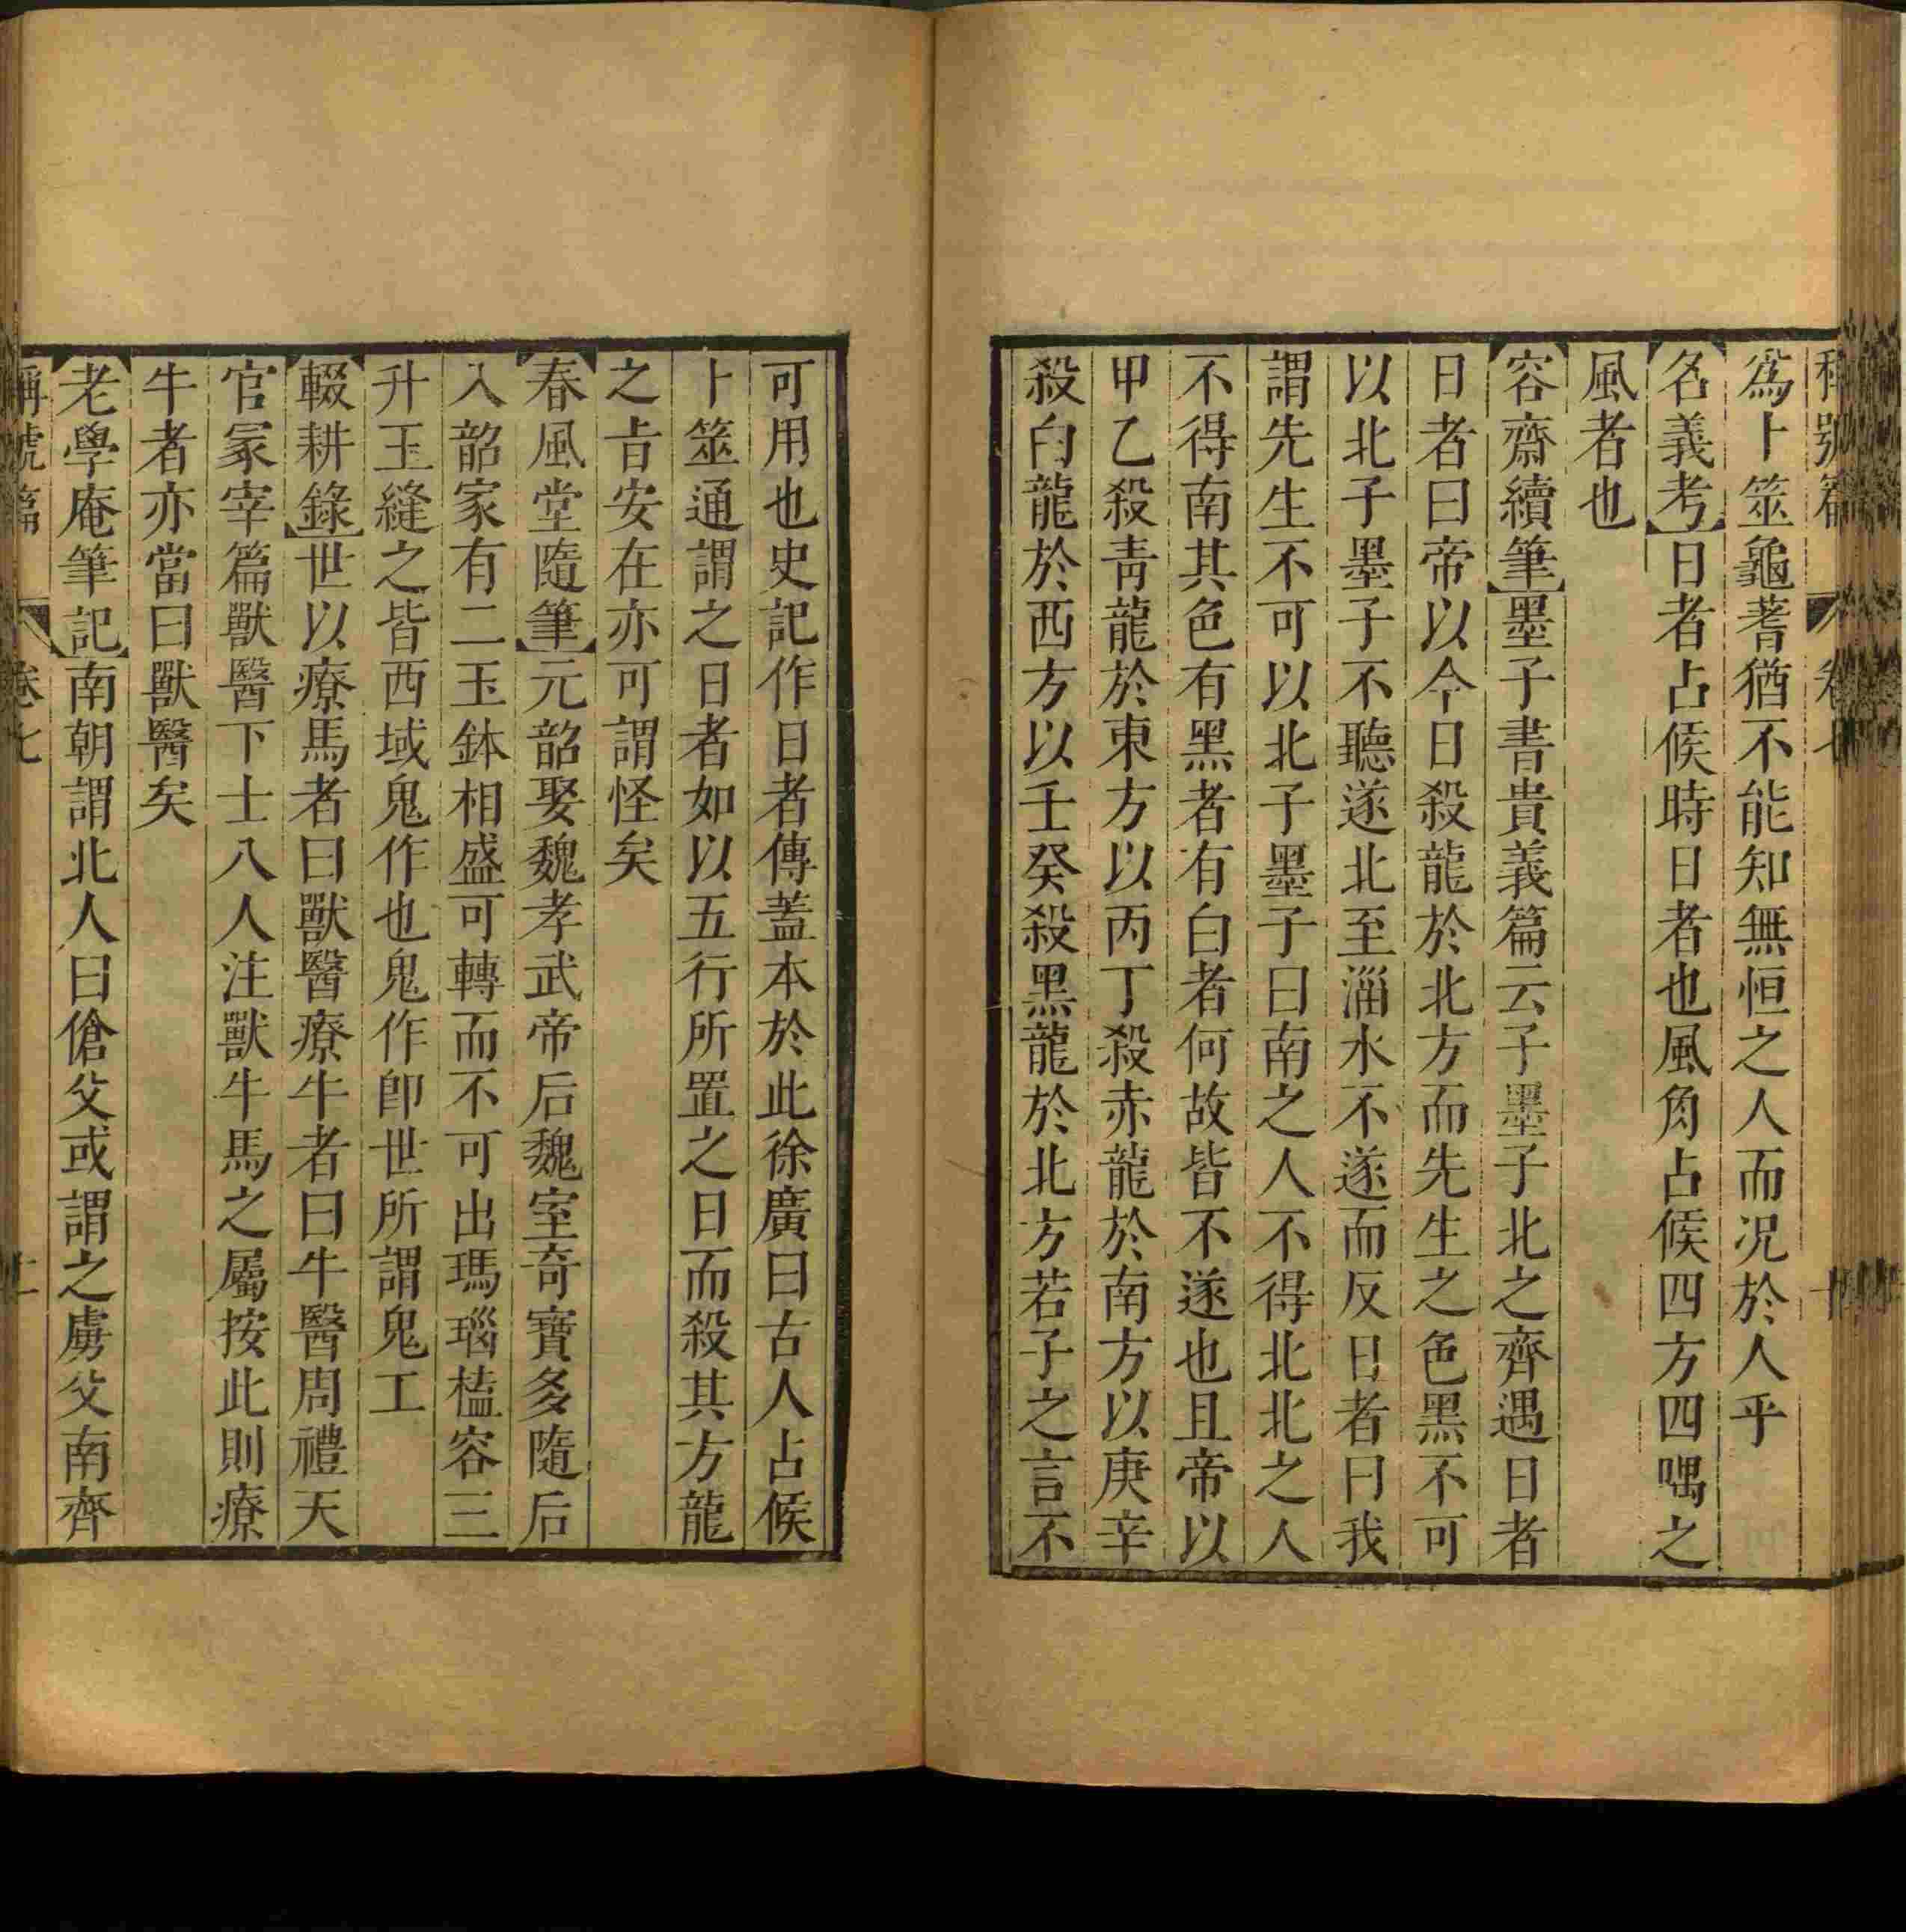 稱號篇 卷七 十
爲卜筮龜蓍猶不能知無恒之人而况於人乎
名義考日者占候時日者也風角占候四方四喁之
風者也
容齋續筆墨子書貴義篇云子墨子北之齊遇日者
日者曰帝以今日殺龍於北方而先生之色黑不可
以北子墨子不聽遂北至淄水不遂而反日者曰我
謂先生不可以北子墨子曰南之人不得北北之人
不得南其色有黑者有白者何故皆不遂也且帝以
甲乙殺青龍於東方以丙丁殺赤龍於南方以庚辛
殺白龍於西方以壬癸殺黑龍於北方若子之言不
可用也史記作日者傳蓋本於此徐廣曰古人占候
卜筮通謂之日者如以五行所置之日而殺其方龍
之㫖安在亦可謂怪矣
春風堂隨筆元韶娶魏孝武帝后魏室奇寶多隨后
入韶家有二玉鉢相盛可轉而不可出瑪瑙榼容三
升玉縫之皆西域鬼作也鬼作卽世所謂鬼工
輟耕錄世以療馬者曰獸醫療牛者曰牛醫周禮天
官冢宰篇獸醫下士八人注獸牛馬之屬按此則療
牛者亦當曰獸醫矣
老學庵筆記南朝謂北人曰傖父或謂之虜父南齊
稱號篇 卷七